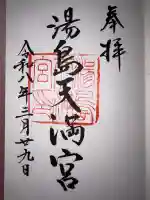 奉拝
湯島天満宮
令和八年二月廿九日